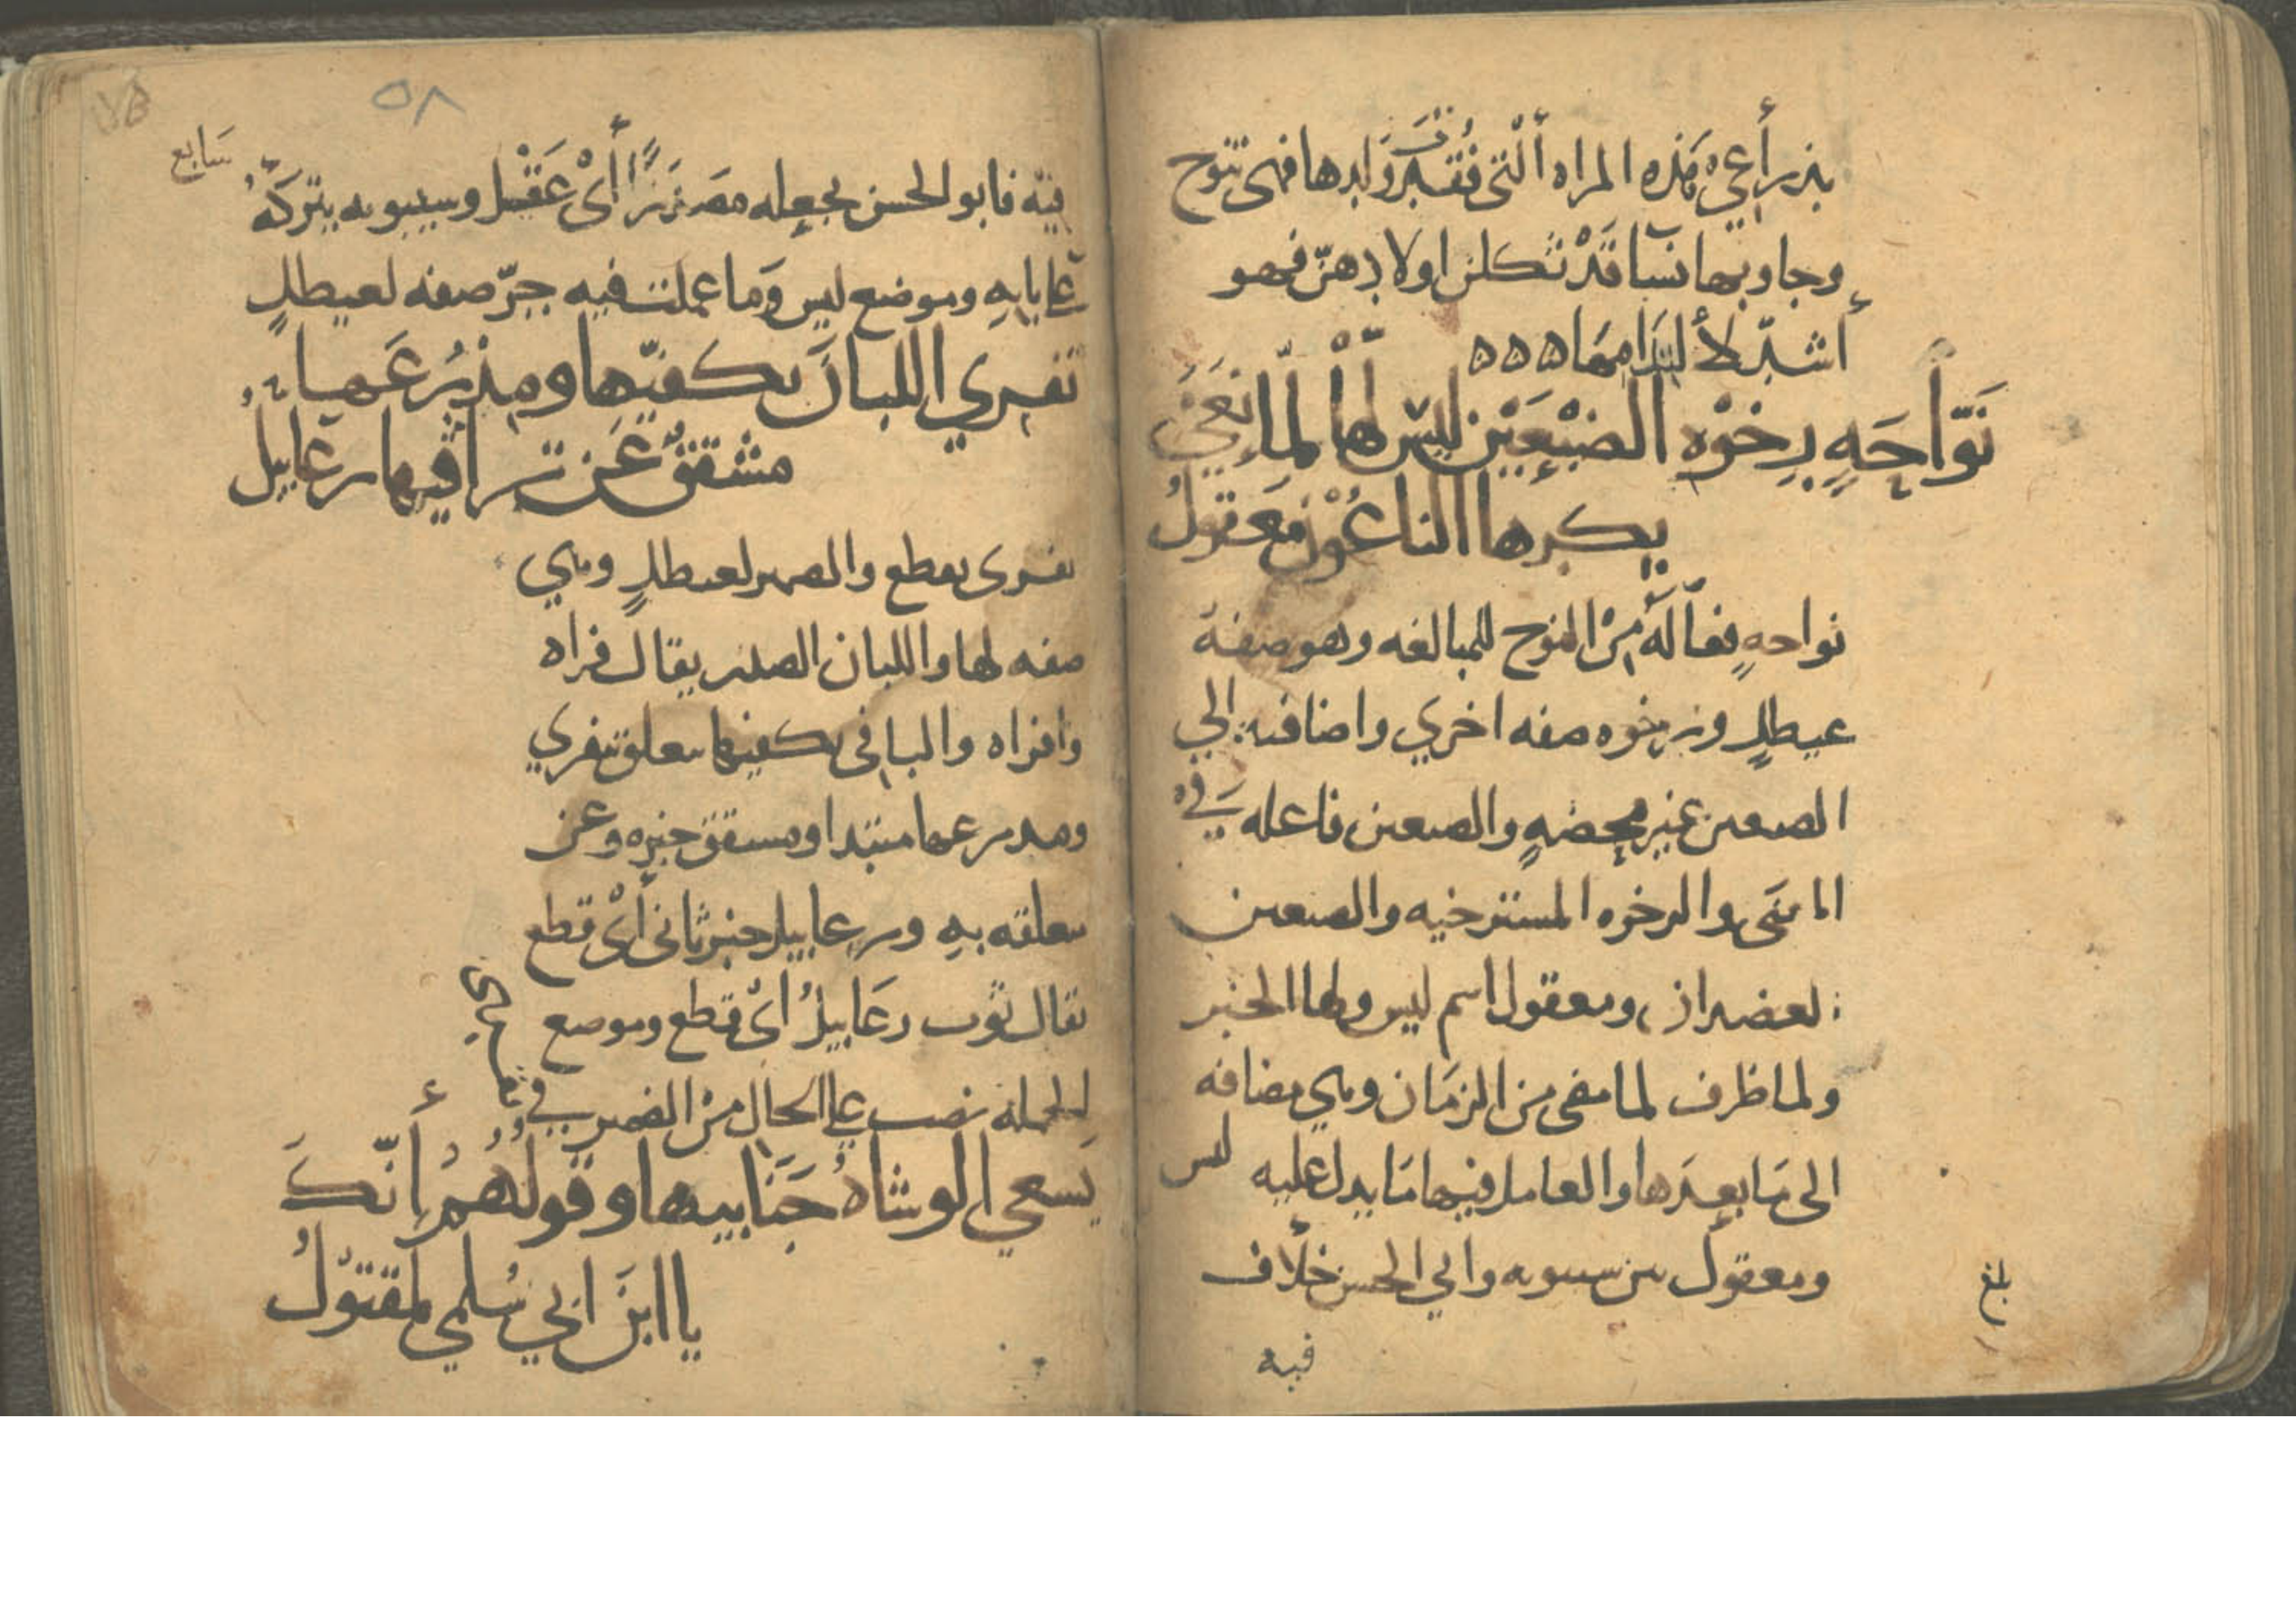 يدي هذه المراه ألتي فُقِدَ ولدها فهي تنوح
وجاوبها نسا قَدْ ثكلن اولادهنّ فهو
أشدّ لألتدامها ه ه ه
نَوّاحَةٍ رِخْوَه الضبْعَيْن ليسَ لها لمّا نَعَى
بكرها الناعُوْنَ مَعقولُ
نواحهٍ فعّالَه مِنْ النوح للمبالغه وهو صفة
عيطلٍ ورخوه صفه اخري واضافته الي
الضبعين غير محضهٍ والضبعين فاعله في
المعنَى والرخوه المسترخيه والضبعين
العضدان ومعقول اسم ليس ولها الخبر
ولما ظرف لما مضى من الزمَان وهي مضافه
الى مَا بعدَها والعامل فيها مَا يدل عليه ليس
ومعقول بين سيبويه وابي الحسن خلاف
فيه
بلغ
٥٨
سابع
فيه فابو الحسن يجعله مصدَرًا أىْ عَقْل وسيبويه يتركهُ
على بابهِ وموضع ليس وَما عملت فيه جرّ صفه لعيطلٍ
تَفري اللبانَ بكفيّها ومِدْرَعُها
مشققٌ عَن تراقيها رعابيلُ
تفرى تقطع والضمير لعيطلٍ وهي
صفه لها واللبان الصدر يقال فراه
وافراه والبا في بكفيها متعلق بتفري
ومدرعها مبتدا ومشقق خبره وعن
متعلقه بهِ ورعابيل خبر ثاني أىْ قطع
يقال ثوب رعَابيلُ أىْ قطع وموضع
الجمله نصب علي الحال منْ الضمير في
يَسعي الوشاهُ جَنَابيها وقولُهُمُ إنّكَ
يا ابنَ ابي سُلمي لمقتوْلُ